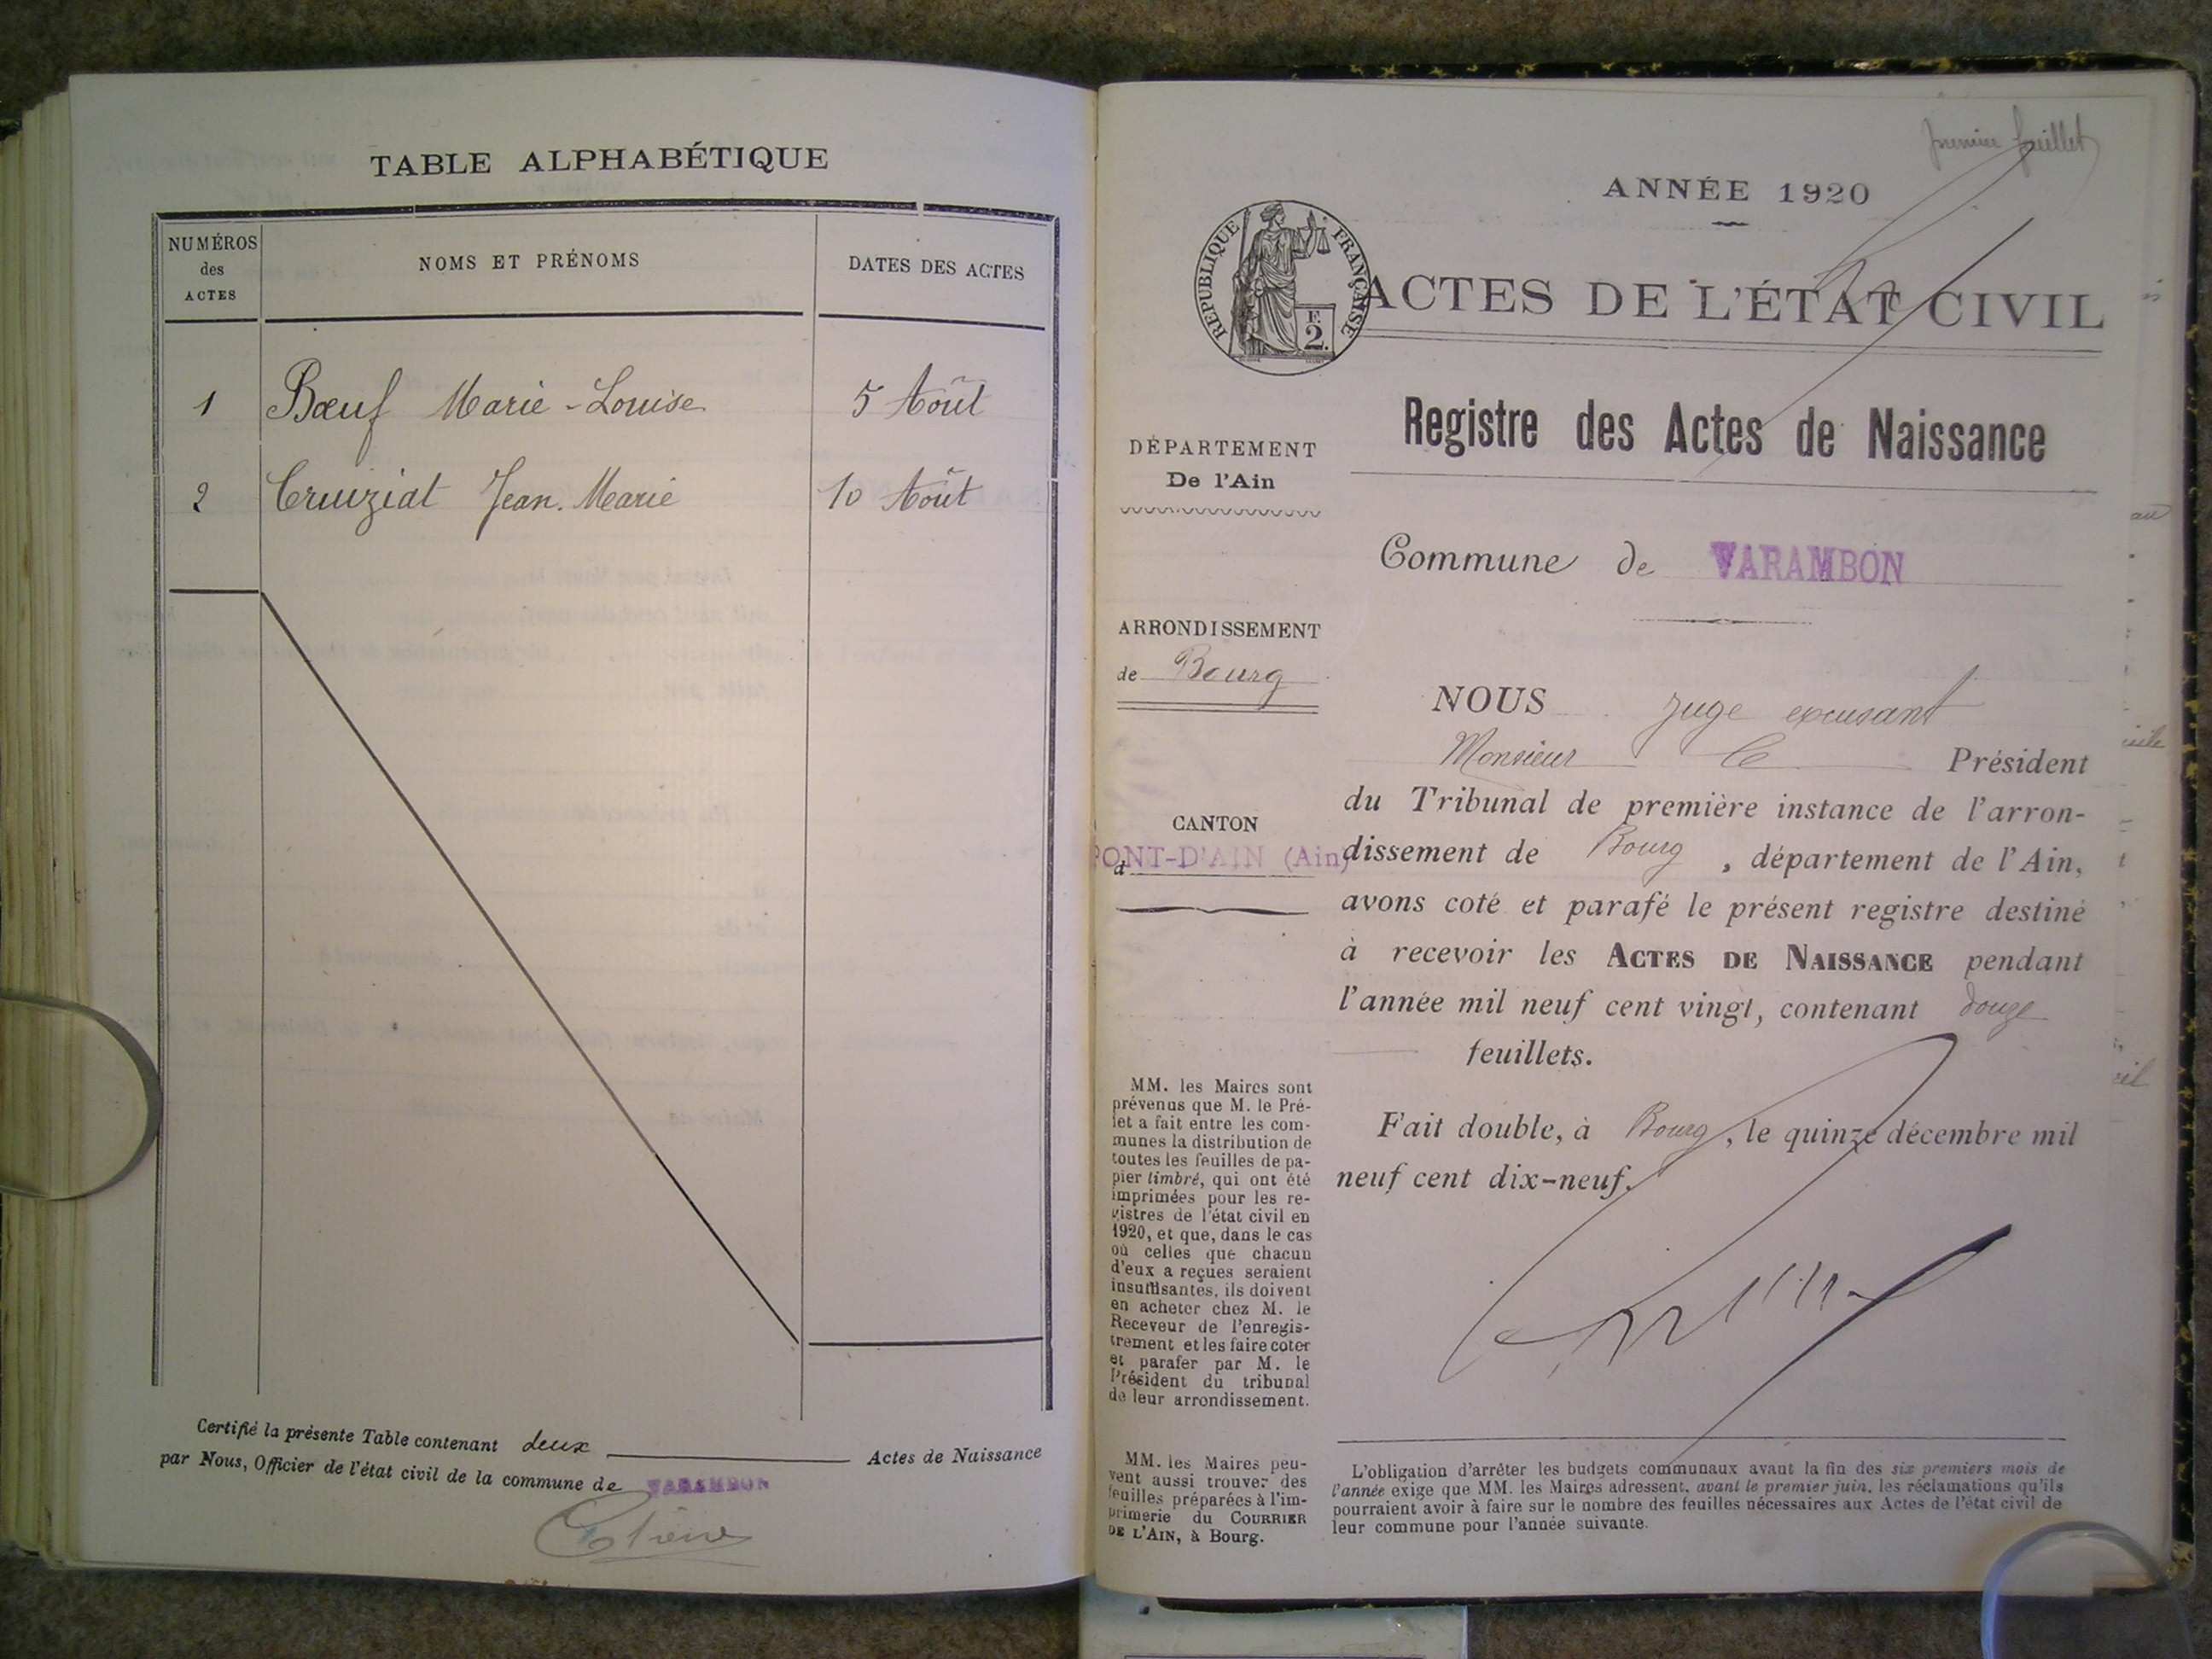 TABLE ALPHABÉTIQUE
NUMÉROS
des
ACTES
NOMS ET PRÉNOMS
DATES DES ACTES
1 Bœuf Marie-Louise 5 Août
2 Cruiziat Jean. Marie 10 Août
Certifié la présente Table contenant deux Actes de Naissance
par Nous, Officier de l'état civil de la commune de VARAMBON
premier feuillet
ANNÉE 1920
RÉPUBLIQUE FRANÇAISE
F.
2
ACTES DE L'ÉTAT CIVIL
Registre des Actes de Naissance
DÉPARTEMENT
De l'Ain
Commune de VARAMBON
ARRONDISSEMENT
de Bourg
CANTON
d PONT-D'AIN (Ain)
NOUS juge excusant
Monsieur le Président
du Tribunal de première instance de l'arron-
dissement de Bourg, département de l'Ain,
avons coté et parafé le présent registre destiné
à recevoir les ACTES DE NAISSANCE pendant
l'année mil neuf cent vingt, contenant douze
feuillets.
Fait double, à Bourg, le quinze décembre mil
neuf cent dix-neuf.
MM. les Maires sont
prévenus que M. le Pré-
fet a fait entre les com-
munes la distribution de
toutes les feuilles de pa-
pier timbré, qui ont été
imprimées pour les re-
gistres de l'état civil en
1920, et que, dans le cas
où celles que chacun
d'eux a reçues seraient
insuffisantes, ils doivent
en acheter chez M. le
Receveur de l'enregis-
trement et les faire coter
et parafer par M. le
Président du tribunal
de leur arrondissement.
MM. les Maires peu-
vent aussi trouver des
feuilles préparées à l'im-
primerie du COURRIER
DE L'AIN, à Bourg.
L'obligation d'arrêter les budgets communaux avant la fin des six premiers mois de
l'année exige que MM. les Maires adressent, avant le premier juin, les réclamations qu'ils
pourraient avoir à faire sur le nombre des feuilles nécessaires aux Actes de l'état civil de
leur commune pour l'année suivante.